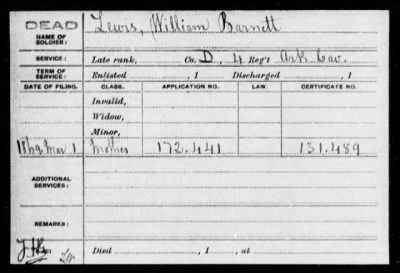 DEAD
NAME OF SOLDIER: Lewis, William Barnett
SERVICE: Late rank, Co. D, 4 Reg't Ark. Cav.
TERM OF SERVICE: Enlisted , 1 Discharged , 1
DATE OF FILING. CLASS. APPLICATION NO. LAW. CERTIFICATE NO.
Invalid,
Widow,
Minor,
1869 Mar 1 Mother 172.441 131.489
ADDITIONAL SERVICES:
REMARKS:
Died , 1 , at